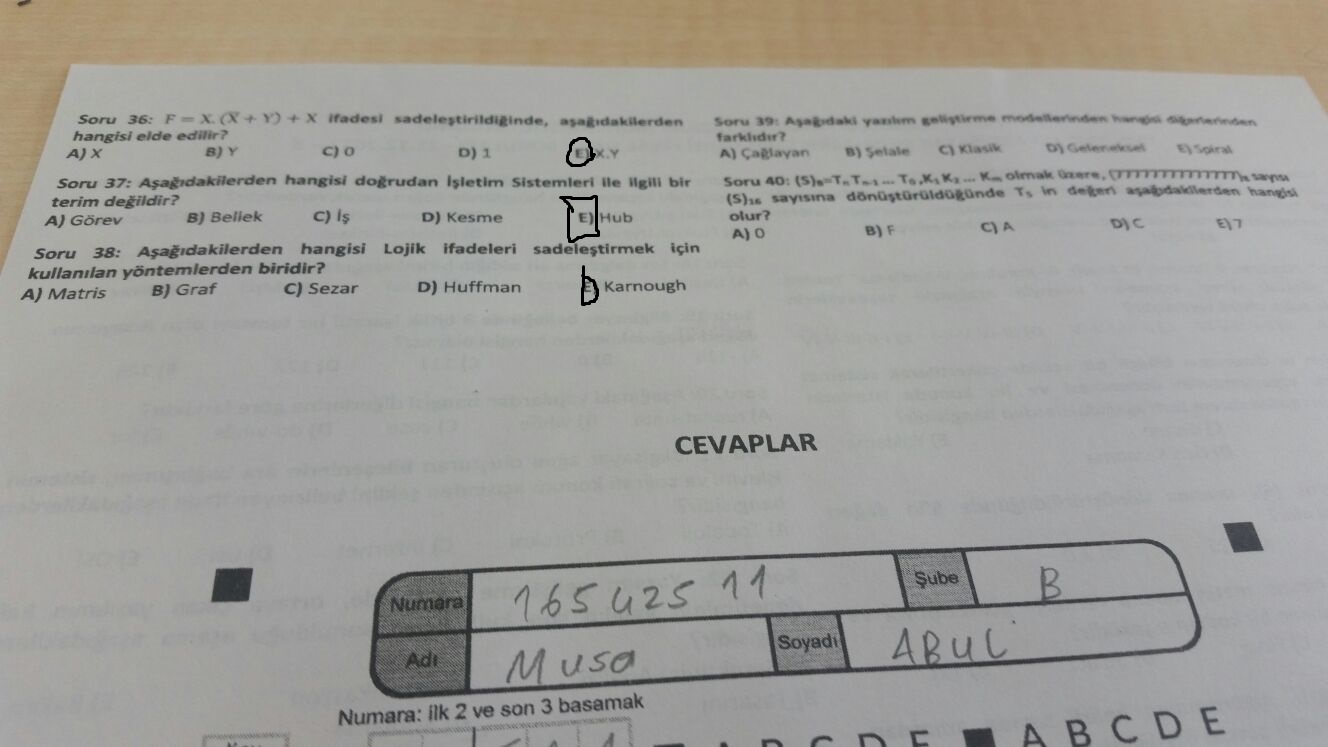 Soru 36: F = X. (X̅ + Y) + X ifadesi sadeleştirildiğinde, aşağıdakilerden
hangisi elde edilir?
A) X B) Y C) 0 D) 1 E) X.Y
Soru 37: Aşağıdakilerden hangisi doğrudan İşletim Sistemleri ile ilgili bir
terim değildir?
A) Görev B) Bellek C) İş D) Kesme E) Hub
Soru 38: Aşağıdakilerden hangisi Lojik ifadeleri sadeleştirmek için
kullanılan yöntemlerden biridir?
A) Matris B) Graf C) Sezar D) Huffman E) Karnough
Soru 39: Aşağıdaki yazılım geliştirme modellerinden hangisi diğerlerinden
farklıdır?
A) Çağlayan B) Şelale C) Klasik D) Geleneksel E) Spiral
Soru 40: (S)₈=TₙTₙ₋₁ ... T₀,K₁K₂ ... Kₘ olmak üzere, sayısı
(S)₁₆ sayısına dönüştürüldüğünde T₅ in değeri aşağıdakilerden hangisi
olur?
A) 0 B) F C) A D) C E) 7
CEVAPLAR
Numara 165425 11 Şube B
Adı Musa Soyadı ABUL
Numara: ilk 2 ve son 3 basamak
A B C D E A B C D E